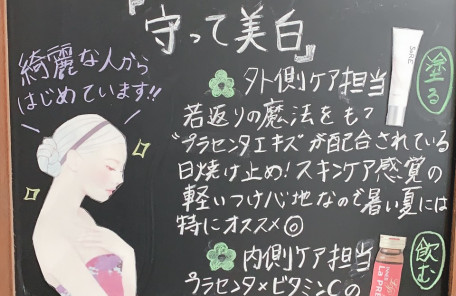 『守って美白』
綺麗な人から
はじめています!!
外側ケア担当
塗る
若返りの魔法をもつ
"プラセンタエキス"が配合されている
日焼け止め!スキンケア感覚の
軽いつけ心地なので暑い夏には
特にオススメ◎
内側ケア担当
飲む
プラセンタ×ビタミンCの
La PR